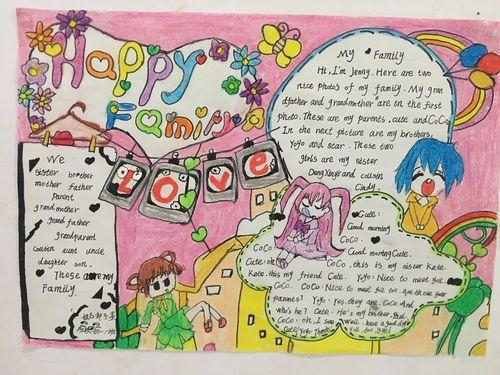 Happy
Family
My Family
Hi, I'm Jenny. Here are two
nice photos of my family. My gran
dfather and grandmother are in the first
photo. These are my parents, Cate and CoCo
In the next picture are my brothers,
YoYo and star. These two
girls are my sister
and cousin
Cindy.
We
sister brother
mother father
Parent
grandmother
grand father
grandparent
cousin aunt uncle
daughter son.
Those are my
Family.
love
Cate:
Good morning
CoCo.
CoCo:
Good morning Cate.
Cate: oh CoCo, this is my sister Kate.
Kate, this my friend Cate. YoYo: Nice to meet you.
CoCo. CoCo: Nice to meet you too. Are those your
parents? YoYo: Yes, they are. CoCo: And
who's he? Cate: He's my brother
CoCo: oh, I see. Well, have a good day
Cate YoYo: Thanks You too